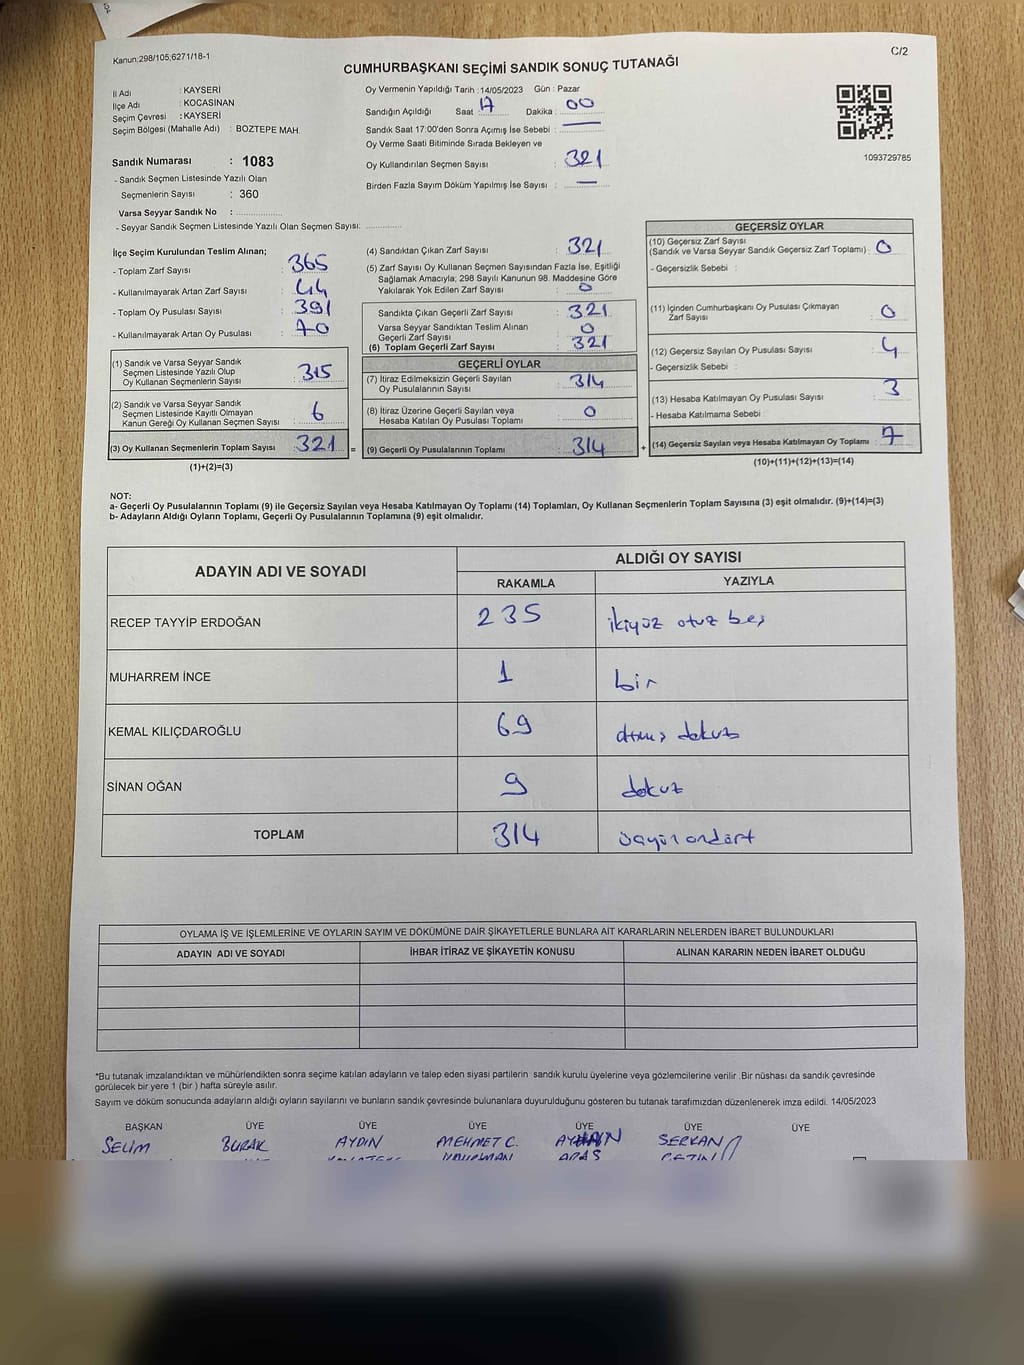 C/2
Kanun:298/105;6271/18-1
CUMHURBAŞKANI SEÇİMİ SANDIK SONUÇ TUTANAĞI
İl Adı : KAYSERİ
İlçe Adı : KOCASİNAN
Seçim Çevresi : KAYSERİ
Seçim Bölgesi (Mahalle Adı) : BOZTEPE MAH.
Sandık Numarası : 1083
- Sandık Seçmen Listesinde Yazılı Olan
Seçmenlerin Sayısı : 360
Varsa Seyyar Sandık No : ................
- Seyyar Sandık Seçmen Listesinde Yazılı Olan Seçmen Sayısı: ............
Oy Vermenin Yapıldığı Tarih : 14/05/2023 Gün : Pazar
Sandığın Açıldığı Saat 17 Dakika : 00
Sandık Saat 17:00'den Sonra Açımış İse Sebebi : —
Oy Verme Saati Bitiminde Sırada Bekleyen ve
Oy Kullandırılan Seçmen Sayısı : 321
Birden Fazla Sayım Döküm Yapılmış İse Sayısı : —
1093729785
İlçe Seçim Kurulundan Teslim Alınan;
- Toplam Zarf Sayısı : 365
- Kullanılmayarak Artan Zarf Sayısı : 44
- Toplam Oy Pusulası Sayısı : 391
- Kullanılmayarak Artan Oy Pusulası : 70
(1) Sandık ve Varsa Seyyar Sandık
Seçmen Listesinde Yazılı Olup
Oy Kullanan Seçmenlerin Sayısı : 315
(2) Sandık ve Varsa Seyyar Sandık
Seçmen Listesinde Kayıtlı Olmayan
Kanun Gereği Oy Kullanan Seçmen Sayısı : 6
(3) Oy Kullanan Seçmenlerin Toplam Sayısı : 321 =
(1)+(2)=(3)
(4) Sandıktan Çıkan Zarf Sayısı : 321
(5) Zarf Sayısı Oy Kullanan Seçmen Sayısından Fazla İse, Eşitliği
Sağlamak Amacıyla; 298 Sayılı Kanunun 98. Maddesine Göre
Yakılarak Yok Edilen Zarf Sayısı : 0
Sandıkta Çıkan Geçerli Zarf Sayısı : 321
Varsa Seyyar Sandıktan Teslim Alınan
Geçerli Zarf Sayısı : 0
(6) Toplam Geçerli Zarf Sayısı : 321
GEÇERLİ OYLAR
(7) İtiraz Edilmeksizin Geçerli Sayılan
Oy Pusulalarının Sayısı : 314
(8) İtiraz Üzerine Geçerli Sayılan veya
Hesaba Katılan Oy Pusulası Toplamı : 0
(9) Geçerli Oy Pusulalarının Toplamı : 314 +
GEÇERSİZ OYLAR
(10) Geçersiz Zarf Sayısı
(Sandık ve Varsa Seyyar Sandık Geçersiz Zarf Toplamı) : 0
- Geçersizlik Sebebi :
(11) İçinden Cumhurbaşkanı Oy Pusulası Çıkmayan
Zarf Sayısı : 0
(12) Geçersiz Sayılan Oy Pusulası Sayısı : 4
- Geçersizlik Sebebi :
(13) Hesaba Katılmayan Oy Pusulası Sayısı : 3
- Hesaba Katılmama Sebebi :
(14) Geçersiz Sayılan veya Hesaba Katılmayan Oy Toplamı : 7
(10)+(11)+(12)+(13)=(14)
NOT:
a- Geçerli Oy Pusulalarının Toplamı (9) ile Geçersiz Sayılan veya Hesaba Katılmayan Oy Toplamı (14) Toplamları, Oy Kullanan Seçmenlerin Toplam Sayısına (3) eşit olmalıdır. (9)+(14)=(3)
b- Adayların Aldığı Oyların Toplamı, Geçerli Oy Pusulalarının Toplamına (9) eşit olmalıdır.
ADAYIN ADI VE SOYADI ALDIĞI OY SAYISI
RAKAMLA YAZIYLA
RECEP TAYYİP ERDOĞAN 235 ikiyüz otuz beş
MUHARREM İNCE 1 bir
KEMAL KILIÇDAROĞLU 69 atmış dokuz
SİNAN OĞAN 9 dokuz
TOPLAM 314 üçyüz ondört
OYLAMA İŞ VE İŞLEMLERİNE VE OYLARIN SAYIM VE DÖKÜMÜNE DAİR ŞİKAYETLERLE BUNLARA AİT KARARLARIN NELERDEN İBARET BULUNDUKLARI
ADAYIN ADI VE SOYADI İHBAR İTİRAZ VE ŞİKAYETİN KONUSU ALINAN KARARIN NEDEN İBARET OLDUĞU
*Bu tutanak imzalandıktan ve mühürlendikten sonra seçime katılan adayların ve talep eden siyasi partilerin sandık kurulu üyelerine veya gözlemcilerine verilir .Bir nüshası da sandık çevresinde
görülecek bir yere 1 (bir ) hafta süreyle asılır.
Sayım ve döküm sonucunda adayların aldığı oyların sayılarını ve bunların sandık çevresinde bulunanlara duyurulduğunu gösteren bu tutanak tarafımızdan düzenlenerek imza edildi. 14/05/2023
BAŞKAN ÜYE ÜYE ÜYE ÜYE ÜYE ÜYE
SELİM BURAK AYDIN MEHMET C. SERKAN
ARAS ÇETİN